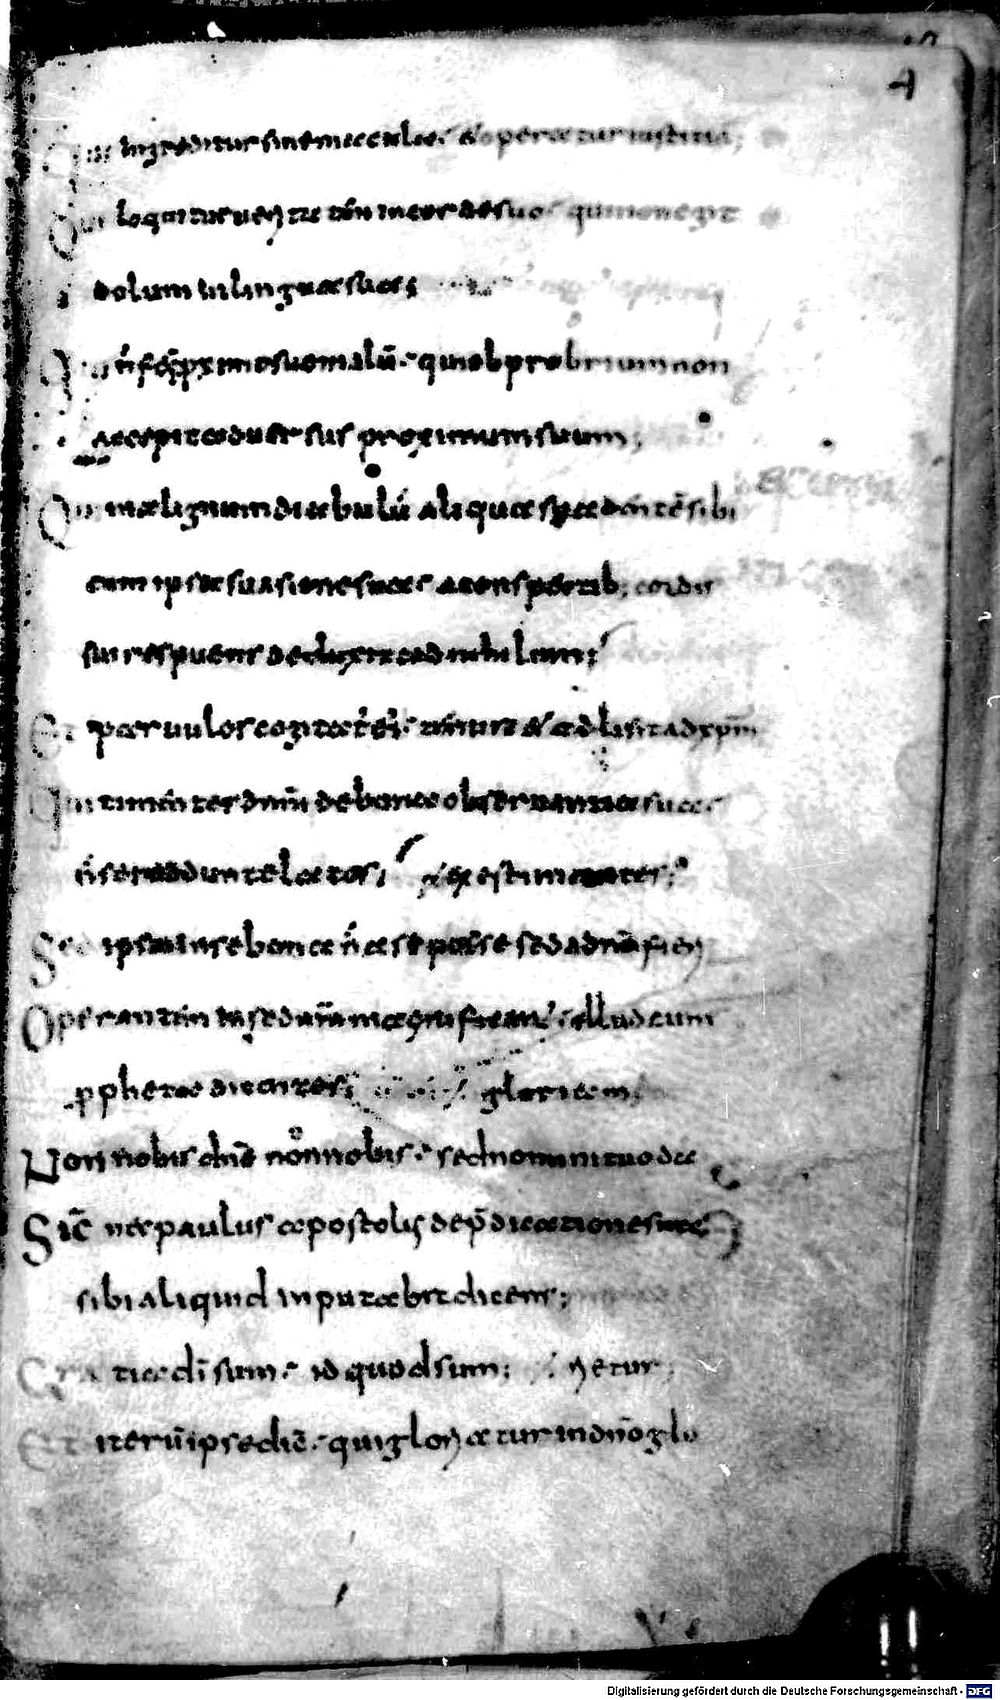 4
Qui ingreditur sine macula· & operatur iustitia;
Qui loquitur ueritatē in corde suo· qui non egit
dolum in lingua sua;
Qui ń fec̄ proximo suo malū· qui obprobrium non
accepit aduersus proximum suum;
Qui malignum diabulū aliqua suadentē sibi
cum ipsa suasione sua· a conspectib; cordis
sui respuens deduxit ad nihilum;
Et paruulos cogitat' ei'· tenuit & adlisit ad xpm̄
Qui timentes dnm̄ de bona obseruantia sua·
ń se reddunt elatos; existimantes;
Sed ipsa in se bona ń a se posse sed a dnō fieri
Operantem in se dnm̄ magnificant· illud cum
propheta dicentes; gloriam;
Non nobis dnē non nobis· sed nomini tuo da
Sic̄ nec paulus apostolus de p̄dicatione sua
sibi aliquid inputabit dicens;
Gratia dī sum· id quod sum; retur;
Et iterū ipse dic̄· qui gloriatur in dnō glo
Digitalisierung gefördert durch die Deutsche Forschungsgemeinschaft - DFG